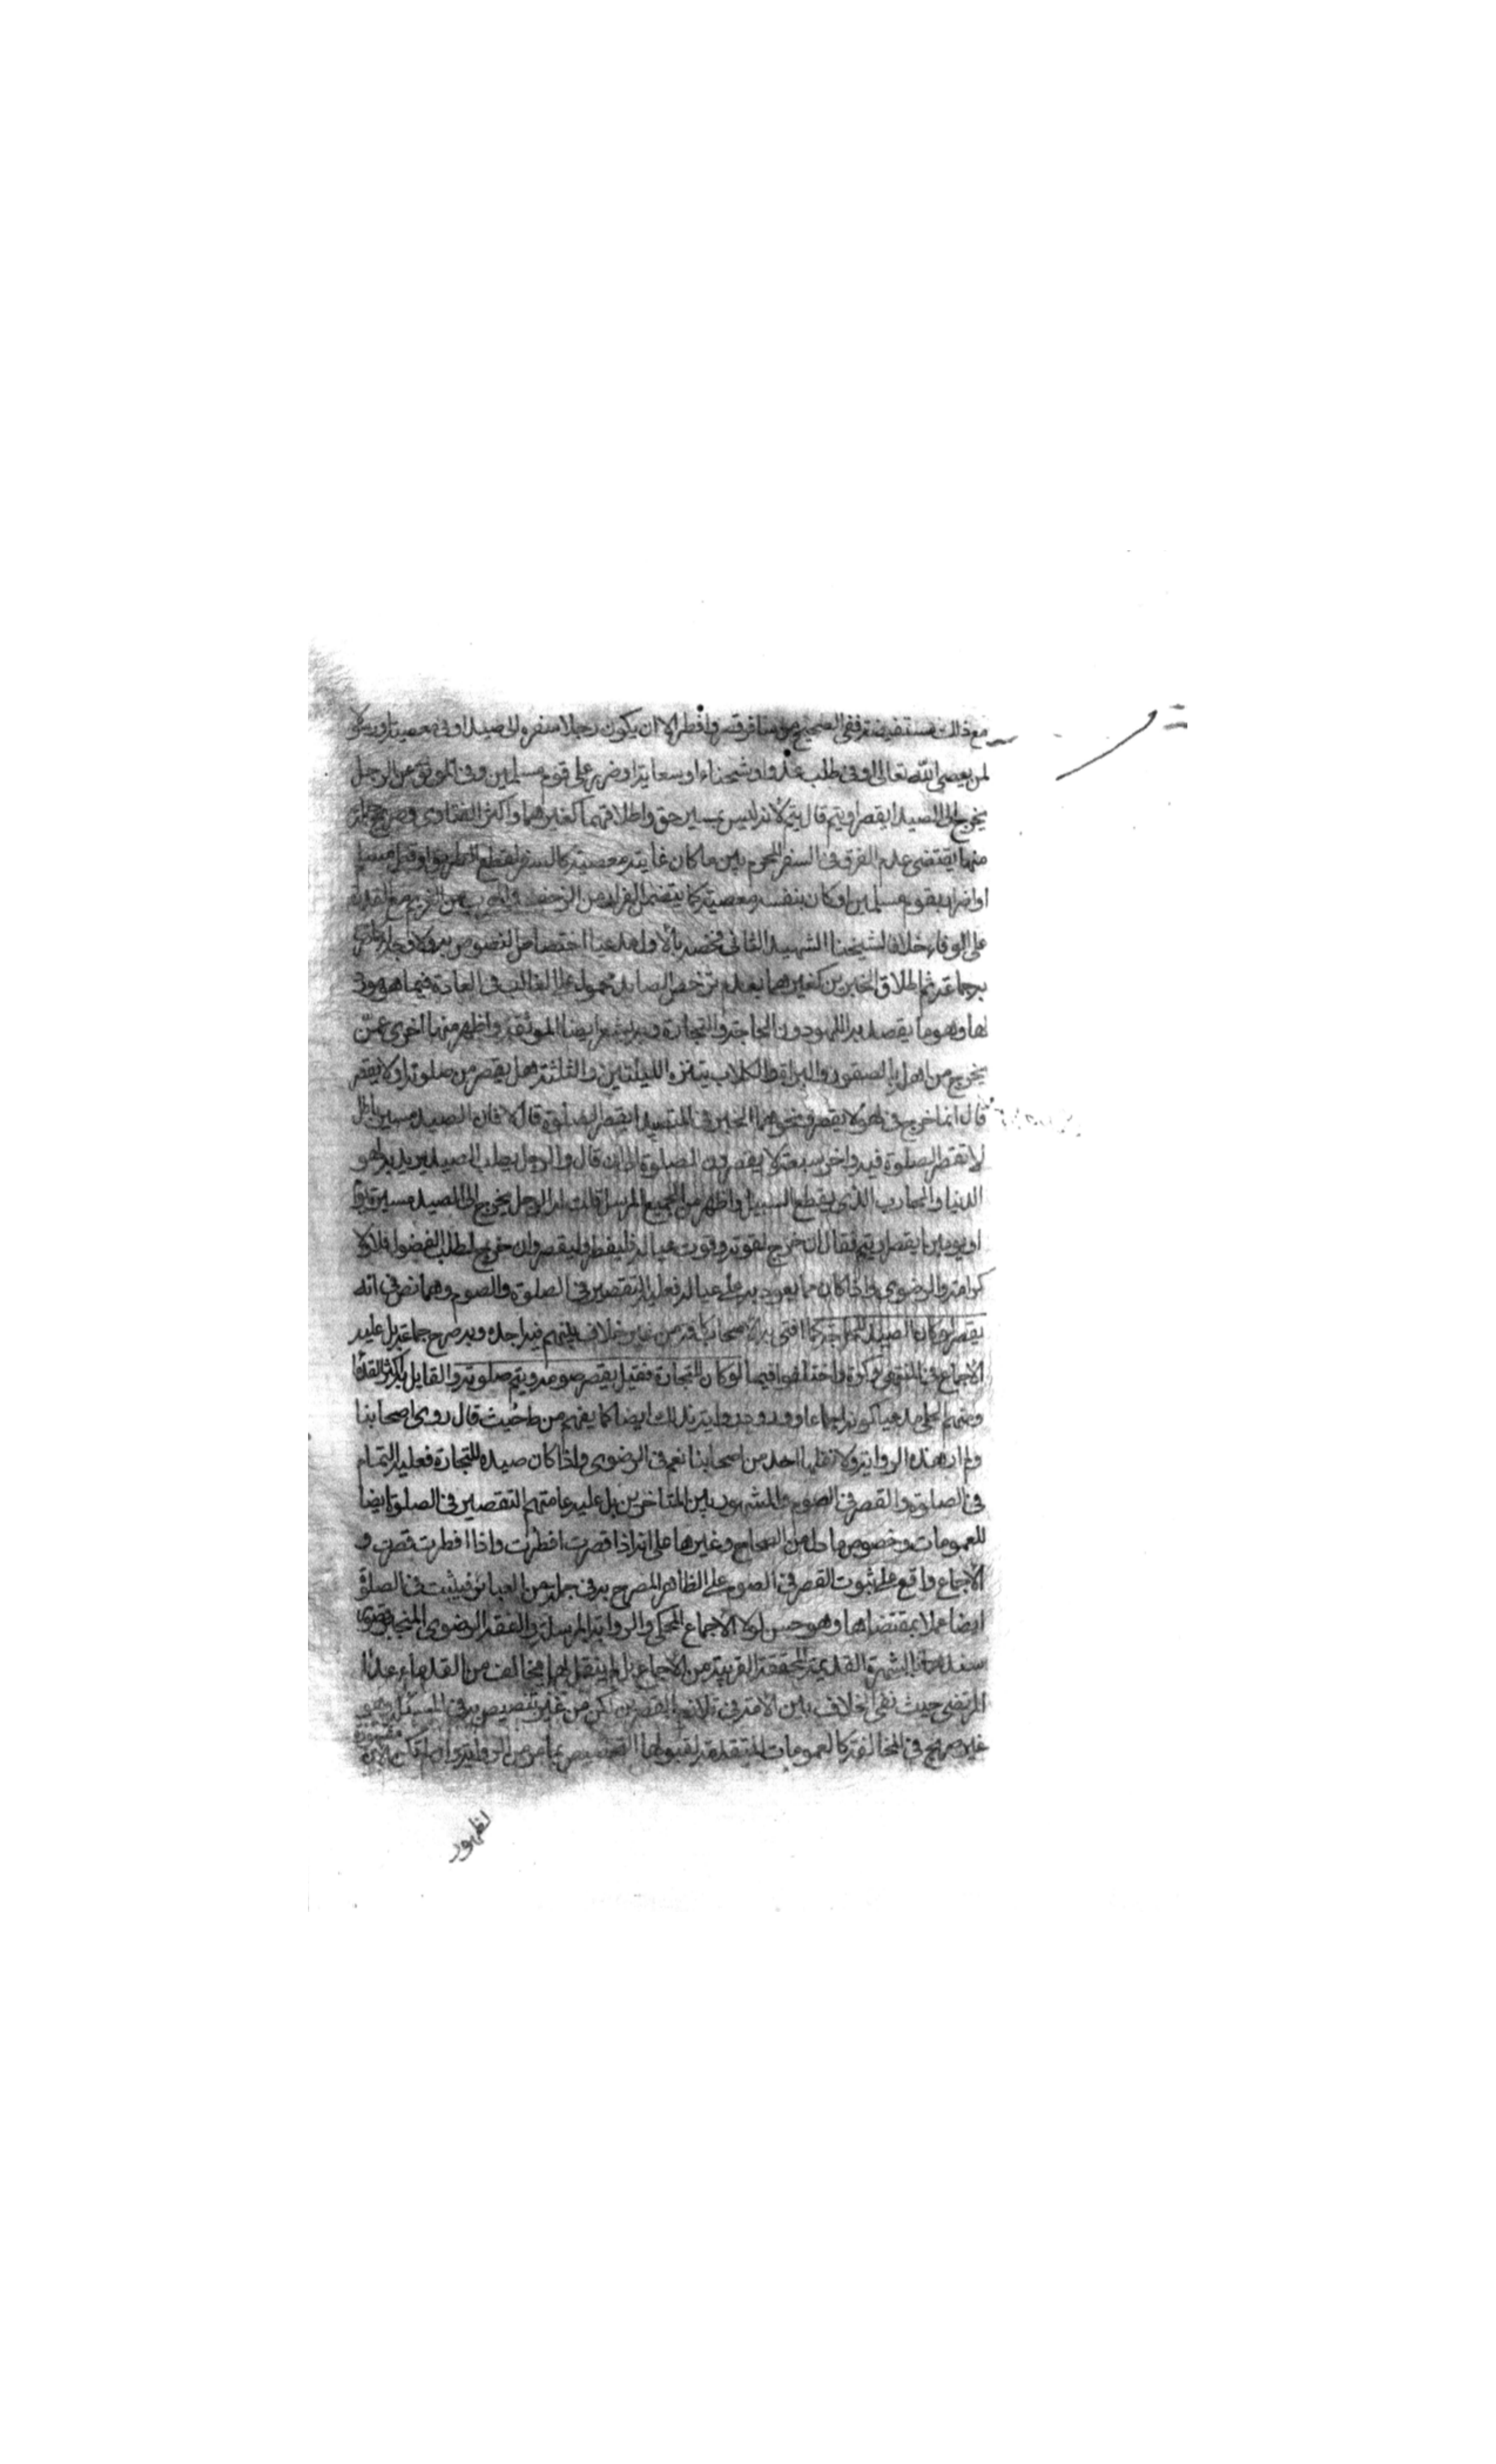 مع ذلك مستفيضة ففي الصحيح من سافر قصر وافطر الا ان يكون رجلا سفره الى صيد او في معصية او رسولا
لمن يعصى الله تعالى او في طلب عدو او شحناء او سعاية او ضرر على قوم مسلمين وفي الموثق عن الرجل
يخرج الى الصيد ايقصر او يتم قال يتم لانه ليس بمسير حق واطلاقهما كغيرهما واكثر الفتاوى وصريح جملة
منها يقتضى عدم الفرق في السفر المحرم بين ما كان غايته معصية كالسفر لقطع الطريق او قتل مسلم
او اضرار بقوم مسلمين او كان بنفسه معصية كما يتضمن الفرار من الزحف والهرب من الغريم مع القدرة
على الوفاء خلافا لشيخنا الشهيد الثاني فخصه بالاول مدعيا اختصاص النصوص به ولا وجه له
به جماعة ثم اطلاق الخبرين كغيرهما بعدم ترخص الصايد محمول على الغالب في العادة فيما هو مورد
لها وهو ما يقصد به اللهو دون الحاجة والتجارة وبه يشعر ايضا الموثقة واظهر منها اخرى عمن
يخرج من اهله بالصقور والبزاة والكلاب يتنزه الليلتين والثلثة هل يقصر من صلوته او لا يقصر
قال انما خرج في لهو لا يقصر ونحوهما الخبر في المتصيد ايقصر الصلوة قال لا فان الصيد مسير باطل
لا تقصر الصلوة فيه واخر سبعة لا يقصرون الصلوة الى ان قال والرجل يطلب الصيد يريد به لهو
الدنيا والمحارب الذي يقطع السبيل واظهر من الجميع المرسل قلت له الرجل يخرج الى الصيد مسيرة يوم
او يومين ايقصر او يتم فقال ان خرج لقوته وقوت عياله فليفطر وليقصر وان خرج لطلب الفضول فلا ولا
كرامة والرضوي واذا كان مما يعود به على عياله فعليه التقصير في الصلوة والصوم وهما نص في انه
يقصر لو كان الصيد للحاجة كما افتى به الاصحاب كافة من غير خلاف بينهم فيه اجده وبه صرح جماعة بل عليه
الاجماع في المنتهى وكرة واختلفوا فيما لو كان للتجارة فقيل يقصر صومه ويتم صلوته والقايل به اكثر القدماء
ومنهم الحلي مدعيا كونه اجماعا وورود رواية بذلك ايضا كما يفهم من ط حيث قال روى اصحابنا
ولم ار هذه الرواية ولا نقلها احد من اصحابنا نعم في الرضوي واذا كان صيده للتجارة فعليه التمام
في الصلوة والقصر في الصوم والمشهور بين المتاخرين بل عليه عامتهم التقصير في الصلوة ايضا
للعمومات وخصوص ما دل من الصحاح وغيرها على انه اذا قصرت افطرت واذا افطرت قصرت و
الاجماع واقع على ثبوت القصر في الصوم على الظاهر المصرح به في جملة من العبائر فيثبت في الصلوة
ايضا عملا بمقتضاها وهو حسن لولا الاجماع المحكي والرواية المرسلة والفقه الرضوي المنجبر قصور
سندهما بالشهرة القديمة المحققة القريبة من الاجماع بل لم ينقل لها مخالف من القدماء عدا
المرتضى حيث نفى الخلاف بين الامة في تلازم القصرين لكن من غير تنصيص به في المسئلة وهو
غير صريح في المخالفة كالعمومات المتقدمة لقبولها التخصيص بما مر من الرواية
لظهور